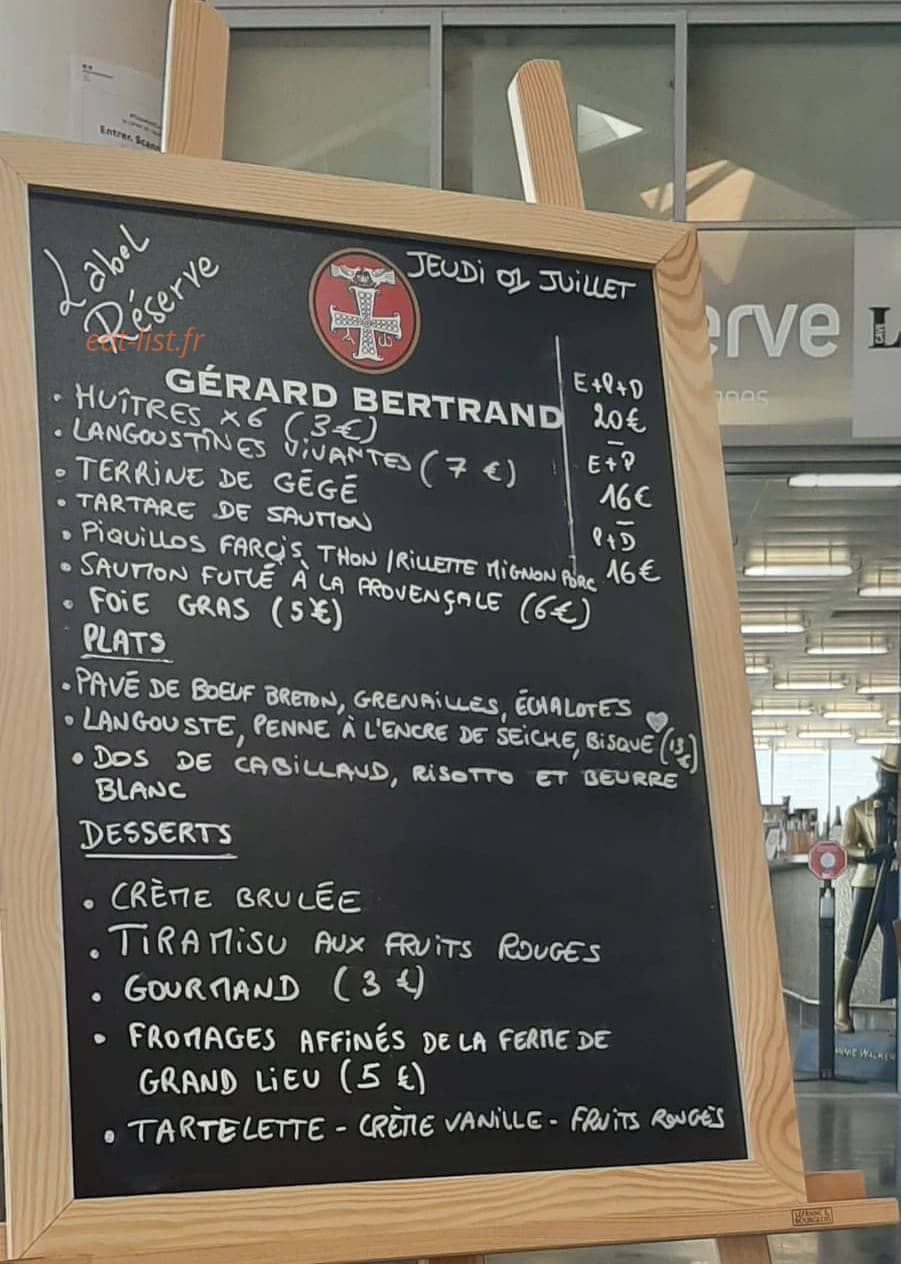 Entrer, Scann
Label
Réserve
eat-list.fr
JEUDI 01 JUILLET
GÉRARD BERTRAND
E+P+D
20€
E+P
16€
P+D
16€
• HUÎTRES X6 (3€)
• LANGOUSTINES VIVANTES (7 €)
• TERRINE DE GÉGÉ
• TARTARE DE SAUMON
• PIQUILLOS FARCIS THON / RILLETTE MIGNON PORC
• SAUMON FUMÉ À LA PROVENÇALE (6€)
• FOIE GRAS (5€)
PLATS
• PAVÉ DE BOEUF BRETON, GRENAILLES, ÉCHALOTES
• LANGOUSTE, PENNE À L'ENCRE DE SEICHE, BISQUE (13€)
• DOS DE CABILLAUD, RISOTTO ET BEURRE
BLANC
DESSERTS
• CRÈME BRULÉE
• TIRAMISU AUX FRUITS ROUGES
• GOURMAND (3 €)
• FROMAGES AFFINÉS DE LA FERME DE
GRAND LIEU (5 €)
• TARTELETTE - CRÈME VANILLE - FRUITS ROUGES
erve
CAVE
L
LEFRANC &
BOURGEOIS